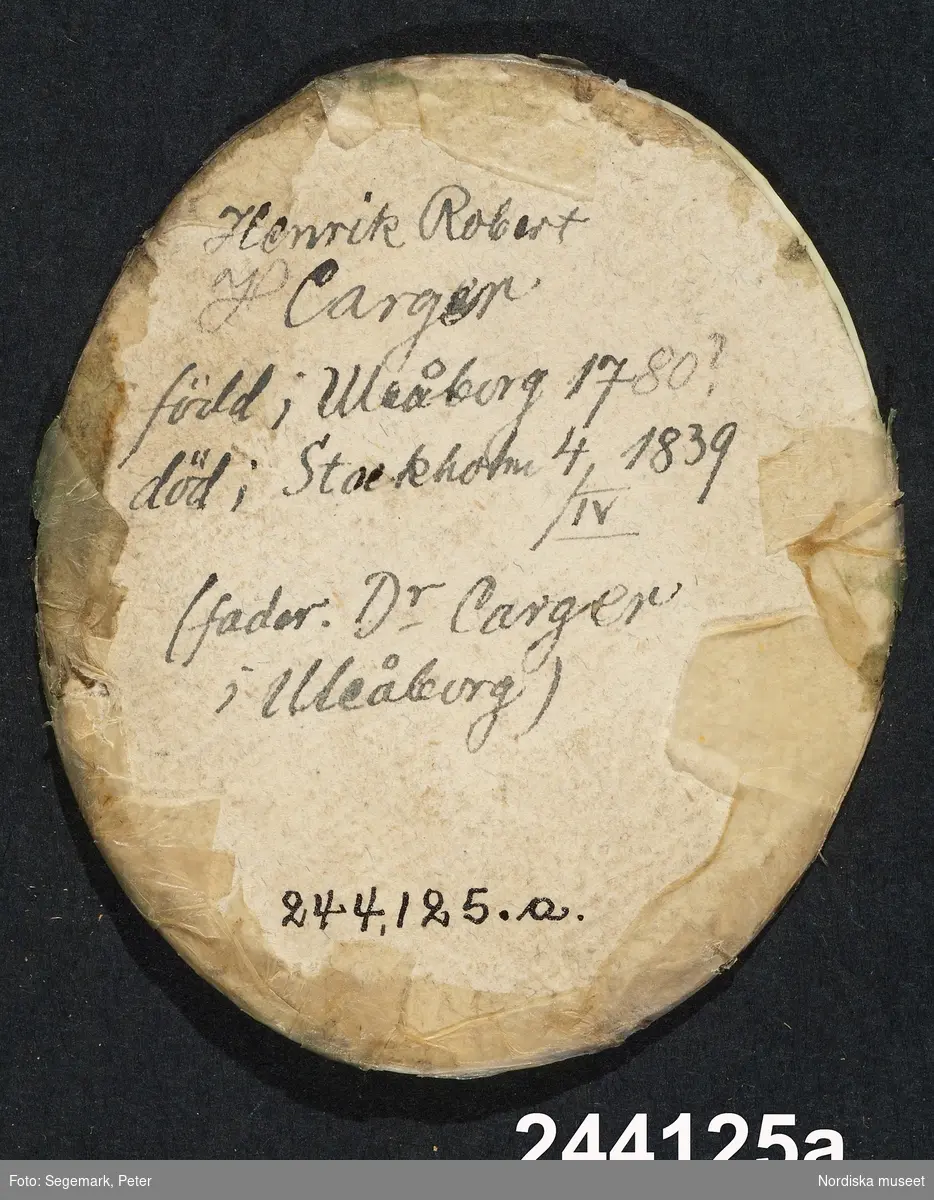 Henrik Robert
Carger
född i Uleåborg 1780?
död i Stockholm 4/IV, 1839
(fader. Dr Carger
i Uleåborg)
244,125.a.
244125a
Foto: Segemark, Peter
Nordiska museet